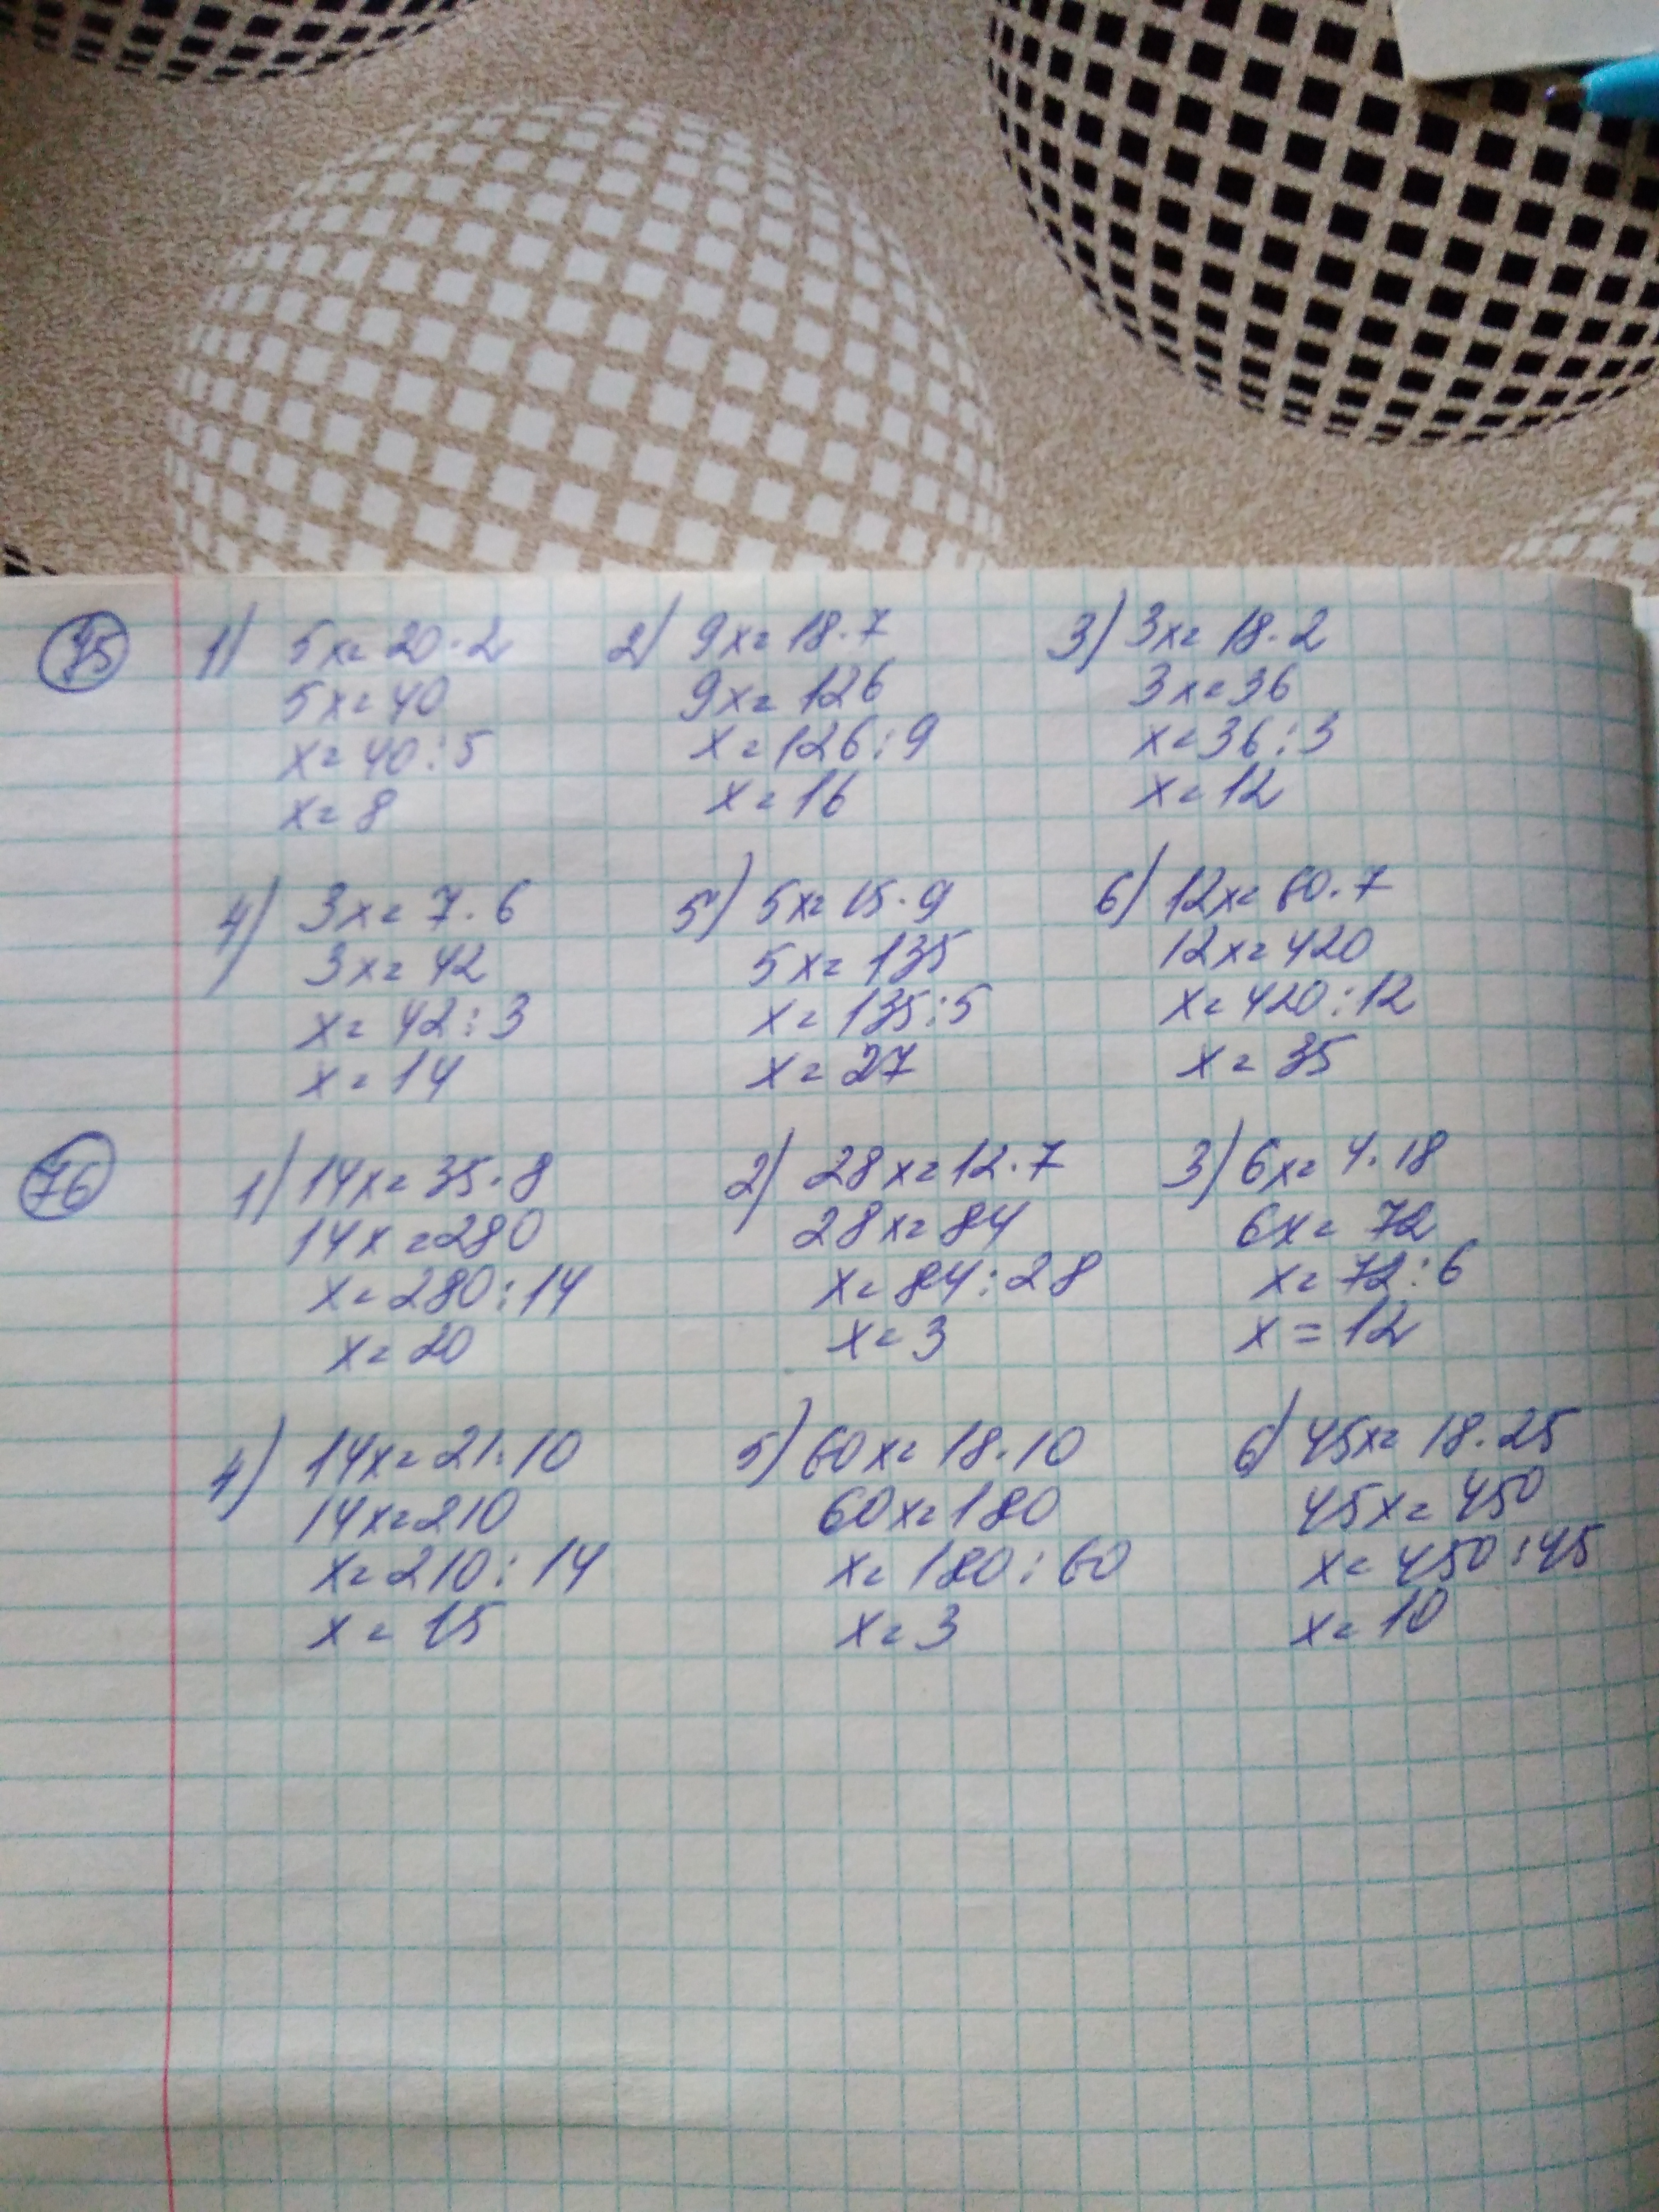 75 1) 5x=20·2 2) 9x=18·7 3) 3x=18·2
5x=40 9x=126 3x=36
x=40:5 x=126:9 x=36:3
x=8 x=16 x=12
4) 3x=7·6 5) 5x=15·9 6) 12x=60·7
3x=42 5x=135 12x=420
x=42:3 x=135:5 x=420:12
x=14 x=27 x=35
76 1) 14x=35·8 2) 28x=12·7 3) 6x=4·18
14x=280 28x=84 6x=72
x=280:14 x=84:28 x=72:6
x=20 x=3 x=12
4) 14x=21·10 5) 60x=18·10 6) 45x=18·25
14x=210 60x=180 45x=450
x=210:14 x=180:60 x=450:45
x=15 x=3 x=10